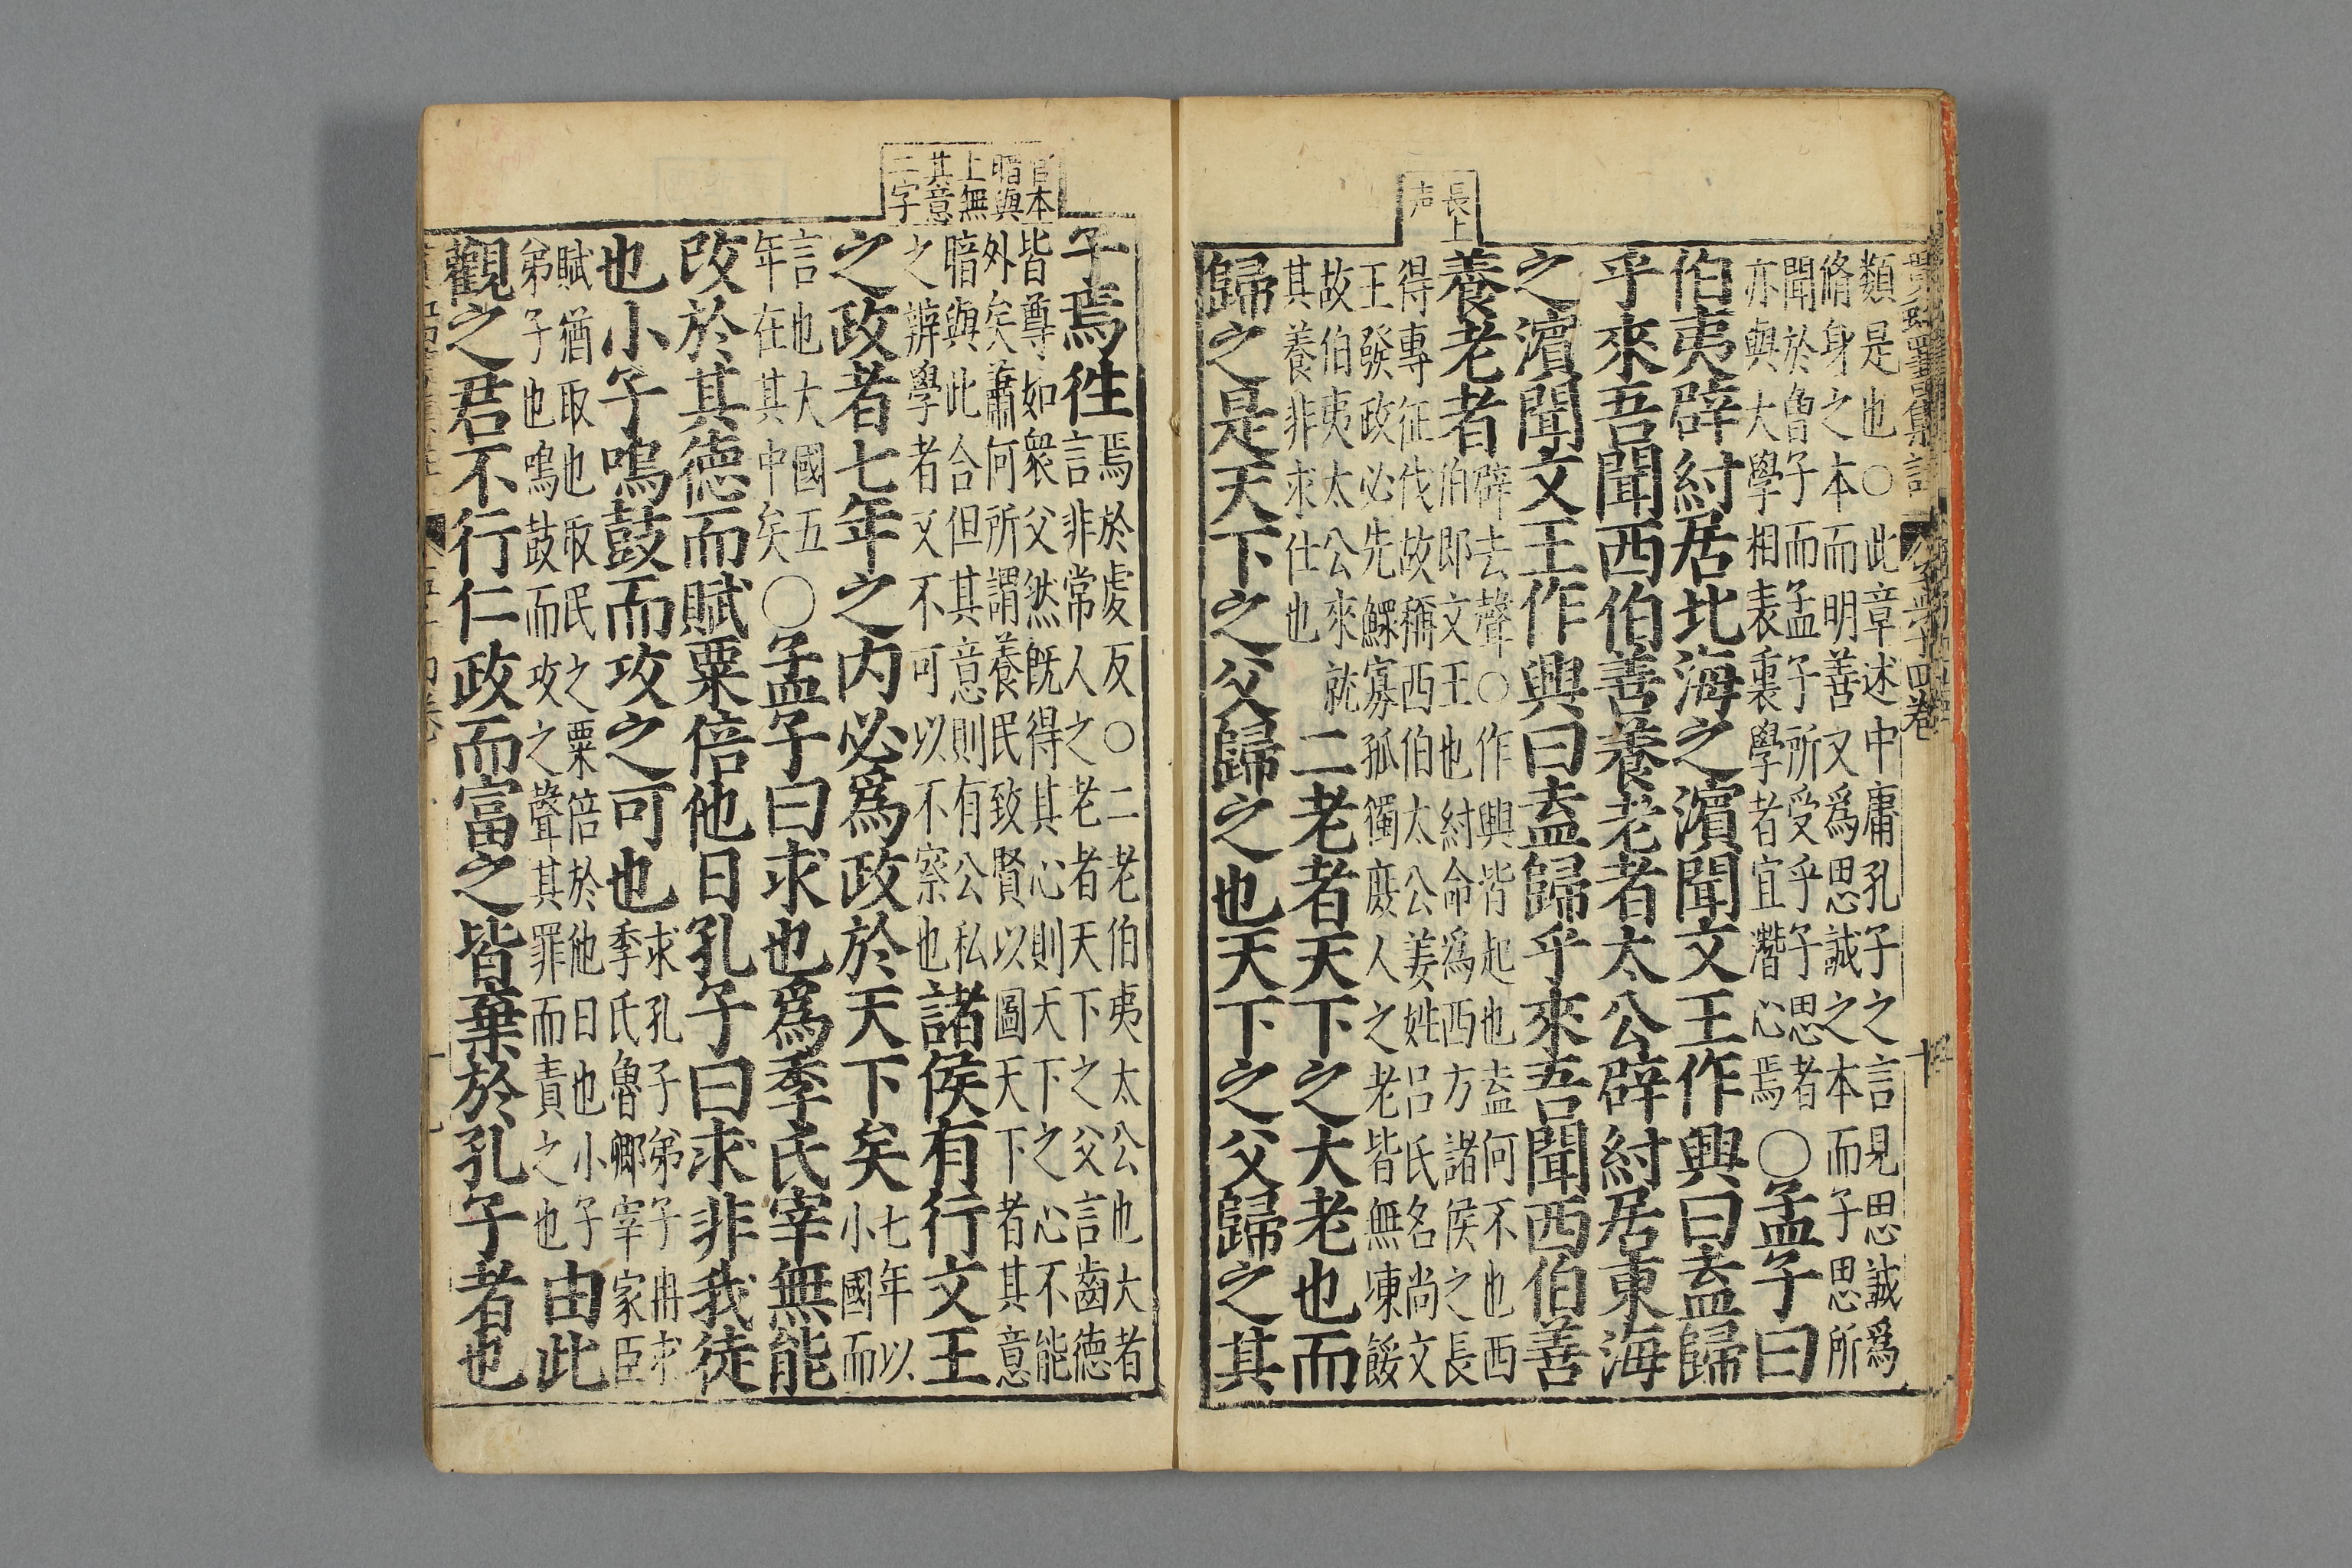 長上
声
類是也○此章述中庸孔子之言見思誠爲
脩身之本而明善又爲思誠之本而子思所
聞於曾子而孟子所受乎子思者
亦與大學相表裏學者宜潛心焉
○孟子曰
伯夷辟紂居北海之濱聞文王作興曰盍歸
乎來吾聞西伯善養老者太公辟紂居東海
之濱聞文王作興曰盍歸乎來吾聞西伯善
養老者
辟去聲○作興皆起也盍何不也西
伯即文王也紂命爲西方諸侯之長
得專征伐故稱西伯太公姜姓呂氏名尚文
王發政必先鰥寡孤獨庶人之老皆無凍餒
故伯夷太公來就
其養非求仕也
二老者天下之大老也而
歸之是天下之父歸之也天下之父歸之其
官本
暗與
上無
其意
二字
子焉往
焉於虔反○二老伯夷太公也大者
言非常人之老者天下之父言齒德
皆尊如衆父然既得其心則天下之心不能
外矣蕭何所謂養民致賢以圖天下者其意
暗與此合但其意則有公私
之辨學者又不可以不察也
諸侯有行文王
之政者七年之内必爲政於天下矣
七年以
小國而
言也大國五
年在其中矣
○孟子曰求也爲季氏宰無能
改於其徳而賦粟倍他日孔子曰求非我徒
也小子鳴鼓而攻之可也
求孔子弟子冉求
季氏魯卿宰家臣
賦猶取也取民之粟倍於他日也小子
弟子也鳴鼓而攻之聲其罪而責之也
由此
觀之君不行仁政而富之皆棄於孔子者也